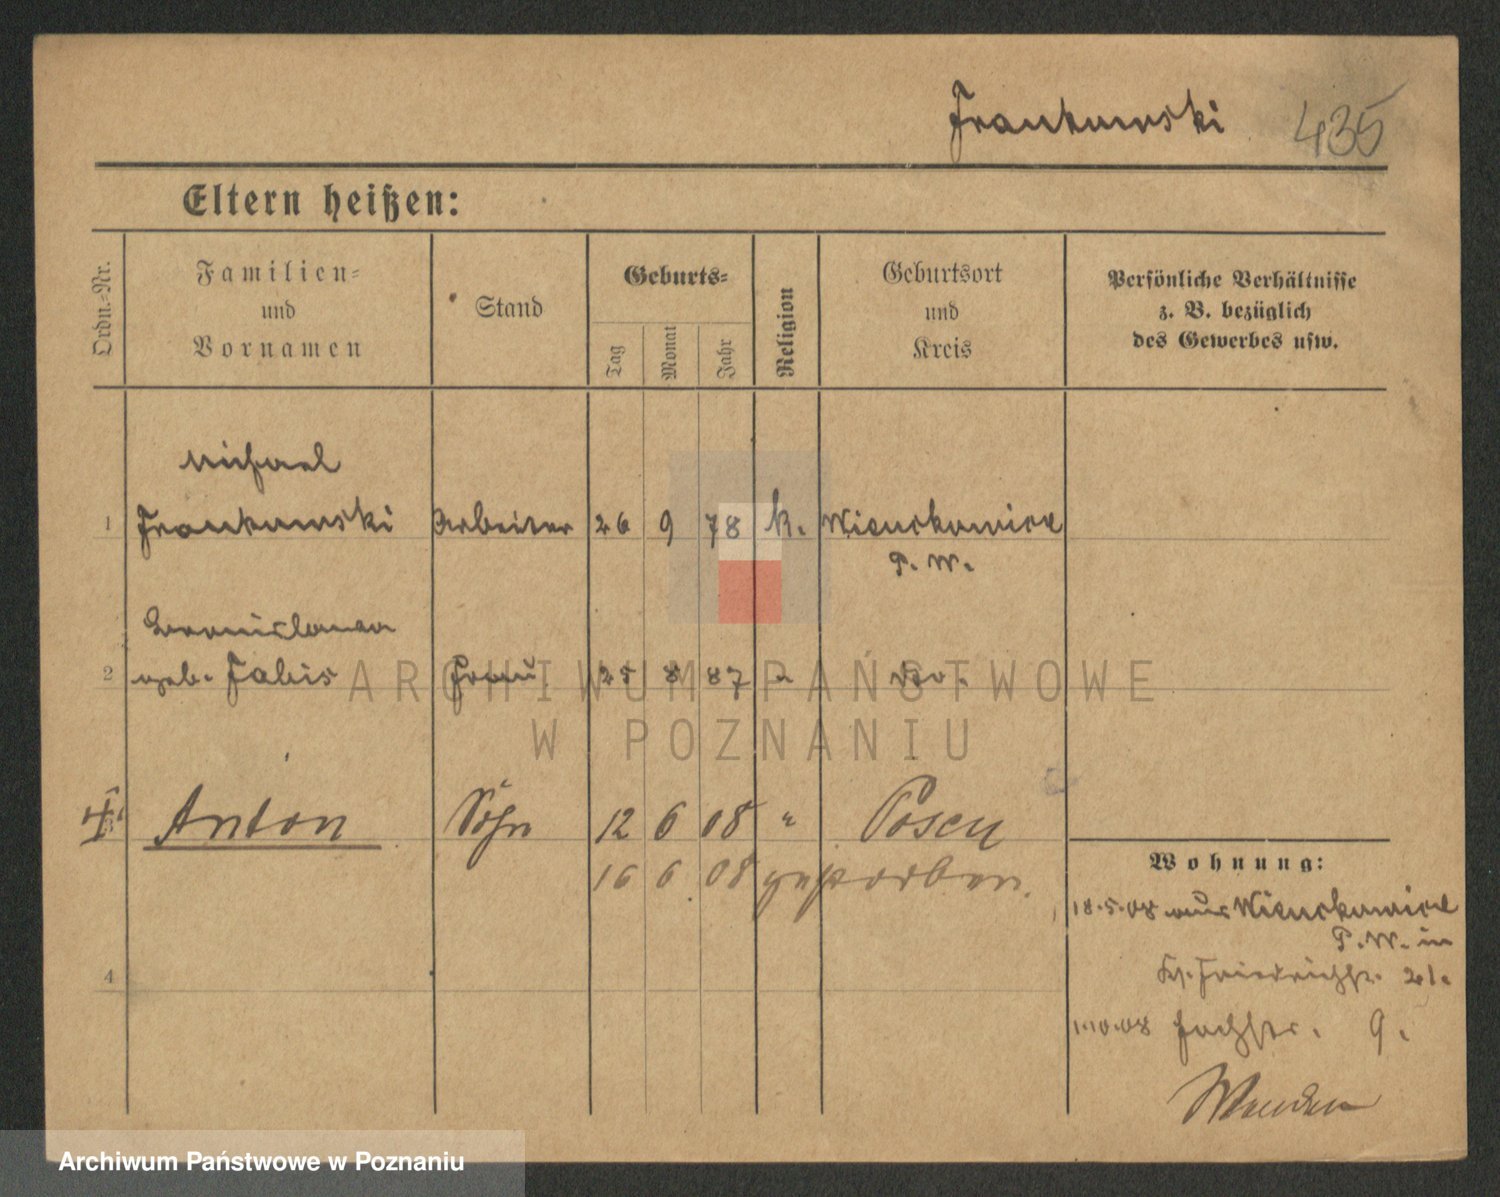 Frankowski 435
Eltern heißen:
Ordn.-Nr.
Familien-
und
Vornamen
Stand
Geburts-
Tag
Monat
Jahr
Religion
Geburtsort
und
Kreis
Persönliche Verhältnisse
z. B. bezüglich
des Gewerbes usw.
Michael
1 Frankowski Arbeiter 26 9 78 k. Wienskowice
P. W.
Bronislawa
2 geb. Fabis Frau 25 8 87 " do.
3 Anton Sohn 12 6 08 " Posen
16 6 08 gestorben.
4
Wohnung:
18.5.08 aus Wienskowice
P. W. in
Friedrichstr. 21.
1.10.08 9.
Wenden
ARCHIWUM PAŃSTWOWE
W POZNANIU
Archiwum Państwowe w Poznaniu